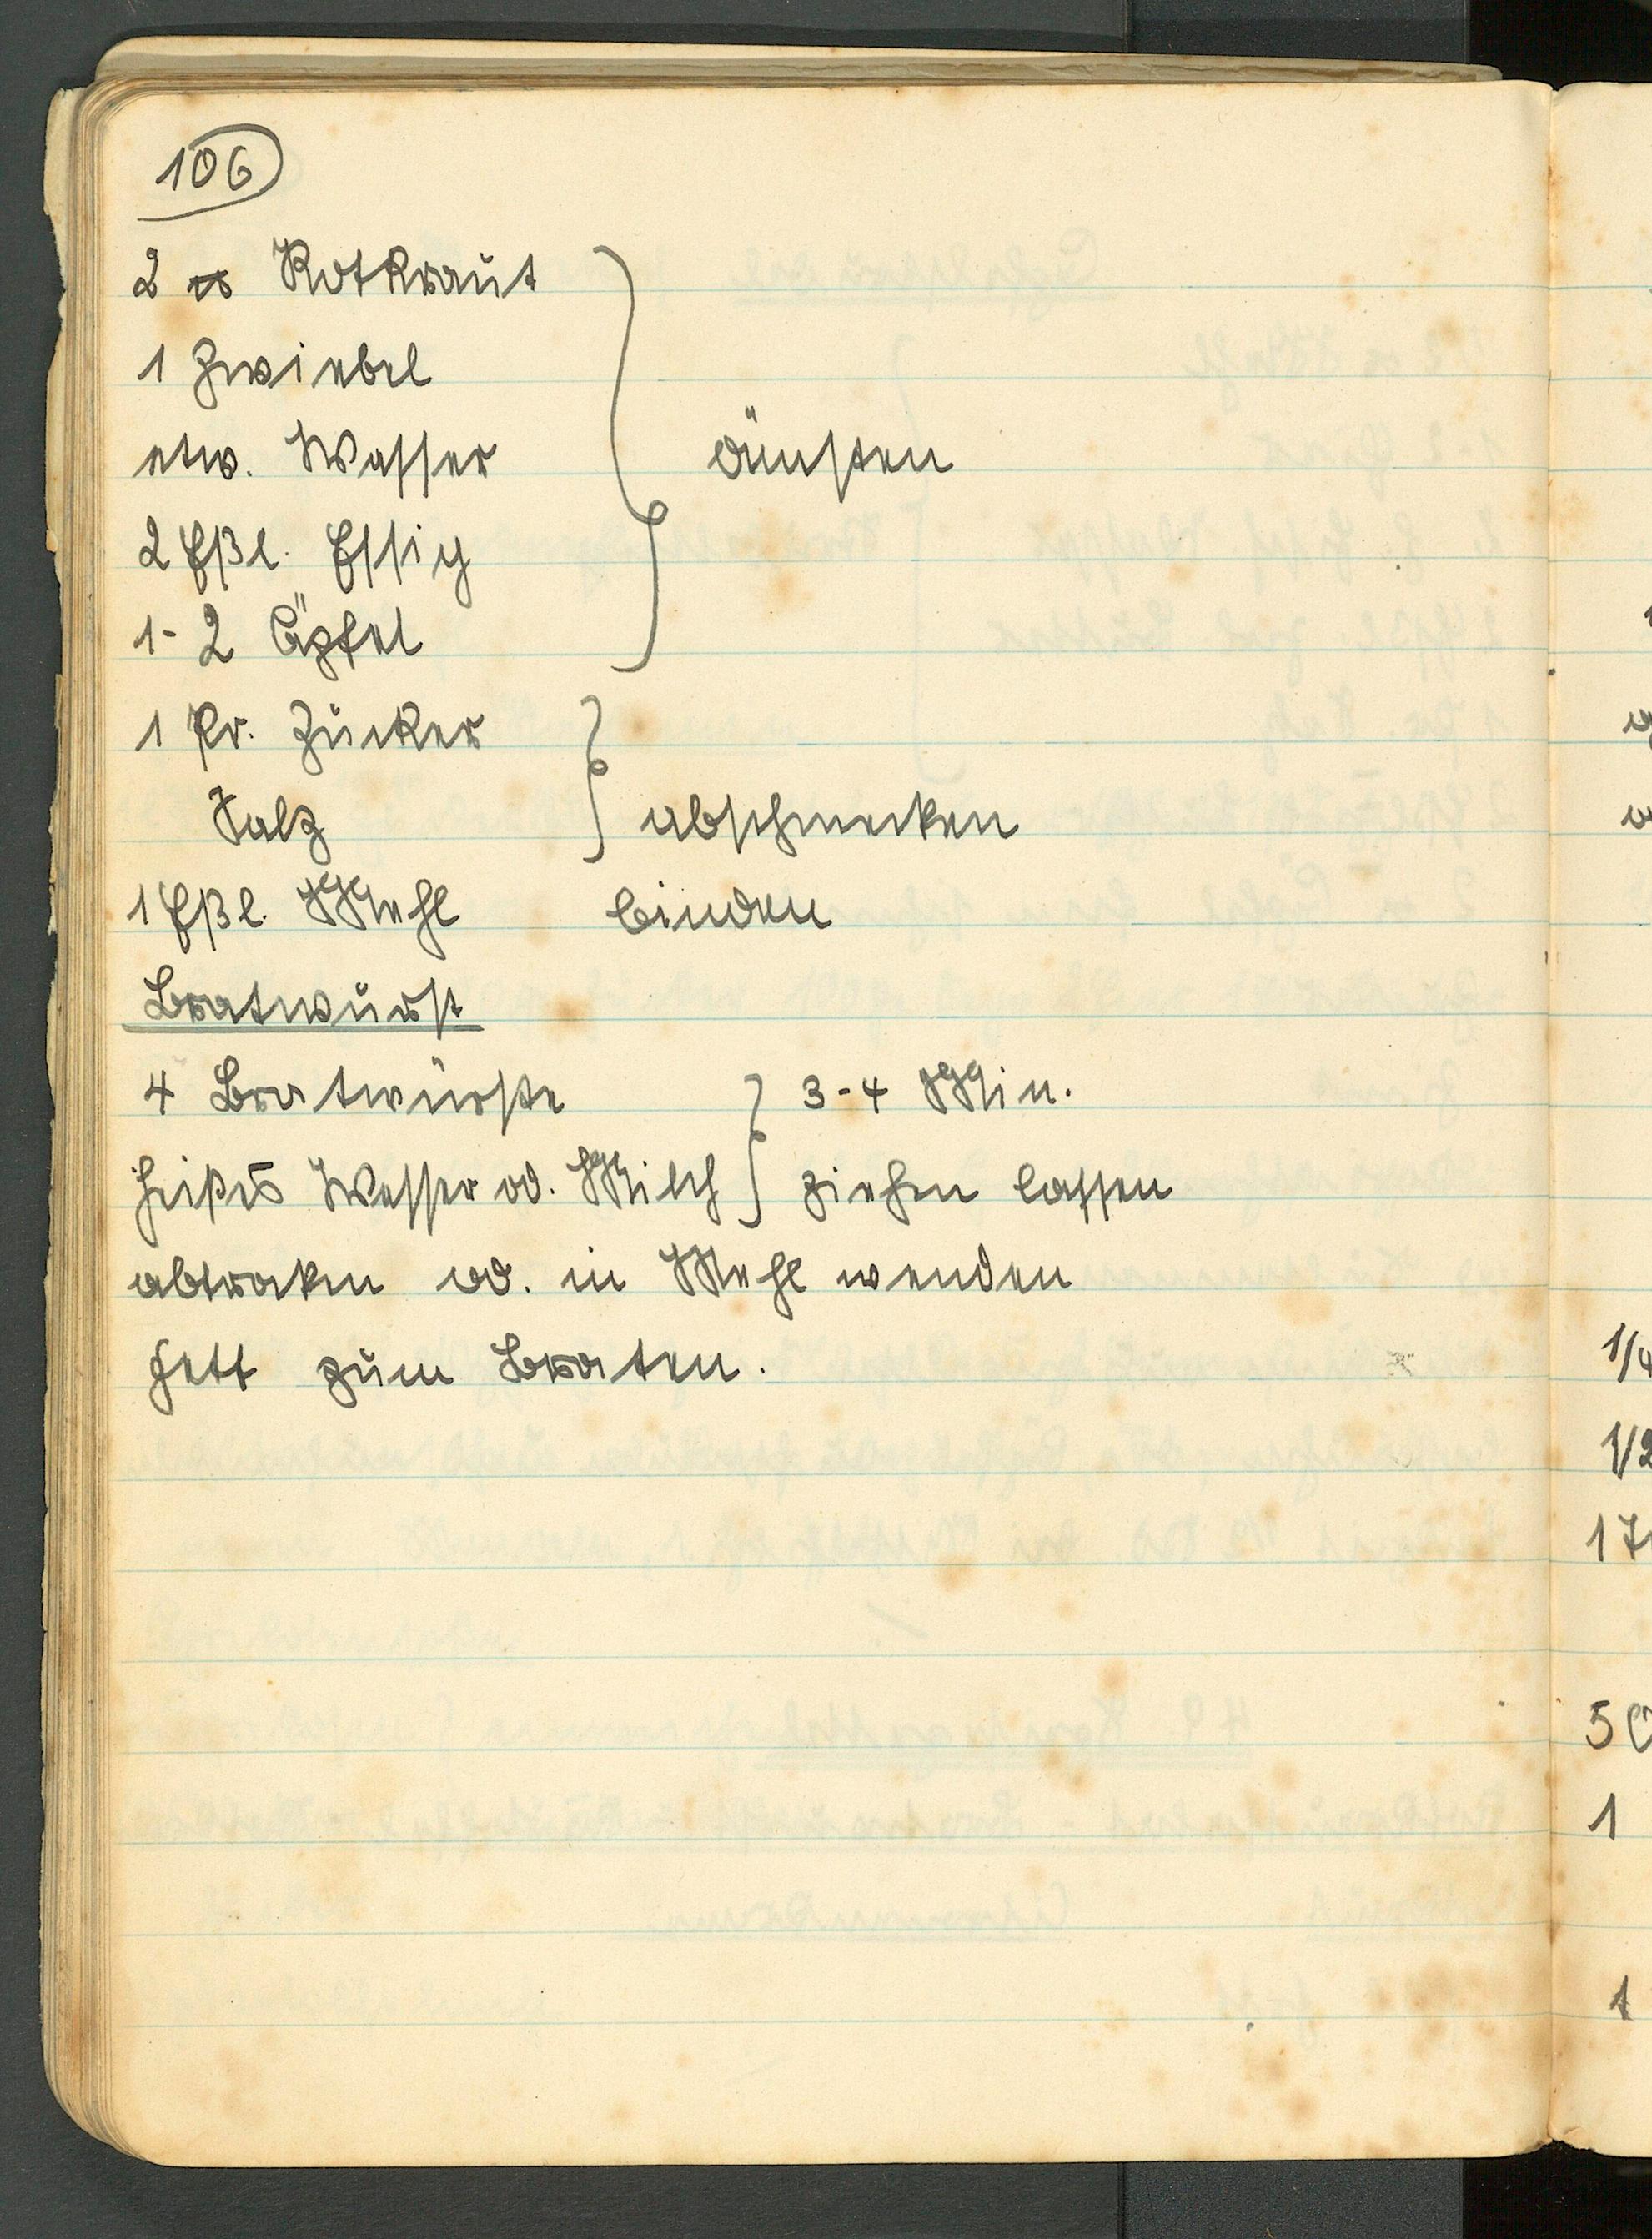 106
2 ℔ Rotkraut
1 Zwiebel
etw. Wasser
dünsten
2 Eßl. Essig
1-2 Äpfel
1 Pr. Zucker
Salz
abschmecken
1 Eßl. Mehl binden
Bratwurst
4 Bratwürste 3-4 Min.
heißes Wasser od. Milch ziehen lassen
od. in Mehl wenden
Fett zum Braten.
1/4
1/2
1
1